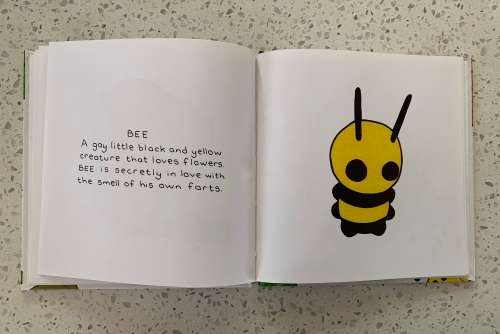 BEE
A gay little black and yellow
creature that loves flowers.
BEE is secretly in love with
the smell of his own farts.